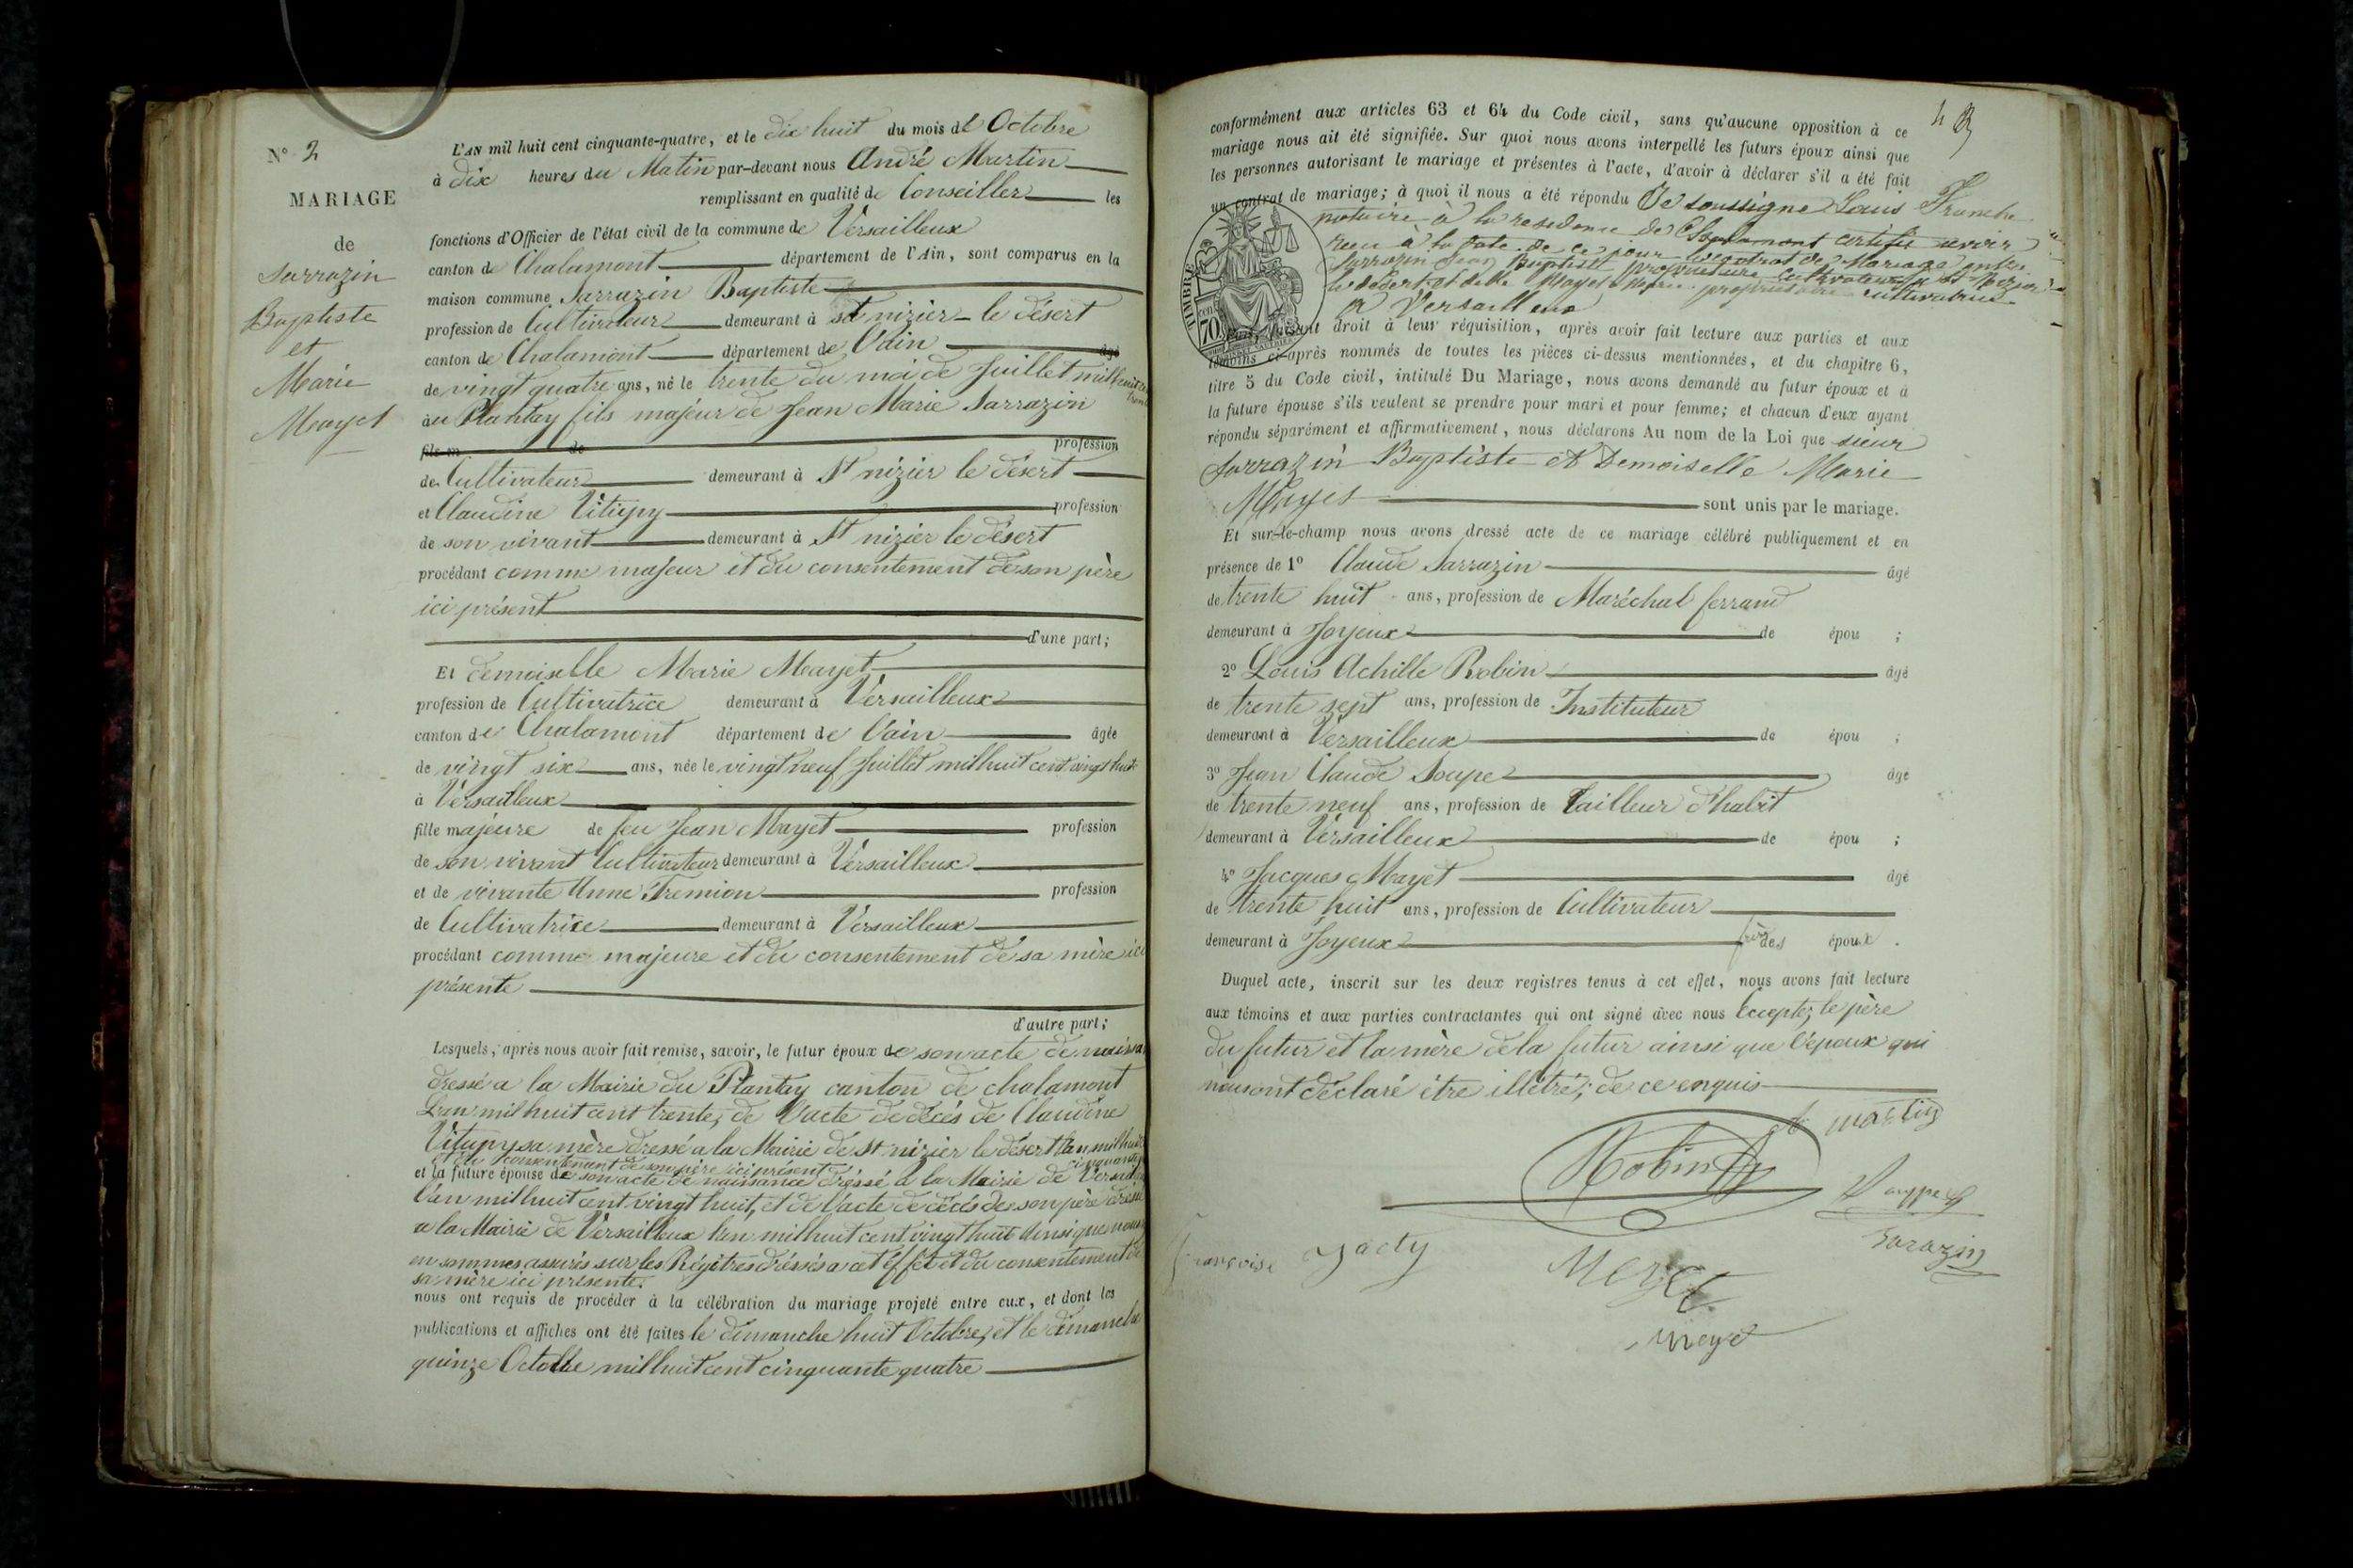 N° 2
MARIAGE
de
Sarrazin
Baptiste
et
Marie
Mayet
L'AN mil huit cent cinquante-quatre, et le dix huit du mois de Octobre
à dix heures du Matin par-devant nous André Martin
remplissant en qualité de Conseiller les
fonctions d'Officier de l'état civil de la commune de Versailleux
canton de Chalamont département de l'Ain, sont comparus en la
maison commune Sarrazin Baptiste
profession de Cultivateur demeurant à st nizier le désert
canton de Chalamont département de l'ain âgé
de vingt quatre ans, né le trente du moi de Juillet mil huit cent trente
au Plantay fils majeur de Jean Marie Sarrazin
fils m de profession
de Cultivateur demeurant à St nizier le désert
et Claudine Vitupy profession
de son vivant demeurant à St nizier le désert
procédant comme majeur et du consentement de son père
ici présent
d'une part;
Et demoiselle Marie Mayet
profession de Cultivatrice demeurant à Versailleux
canton de Chalamont département de l'ain âgée
de vingt six ans, née le vingt neuf Juillet mil huit cent vingt huit
à Versailleux
fille majeure de feu Jean Mayet profession
de son vivant Cultivateur demeurant à Versailleux
et de vivante Anne Tremion profession
de Cultivatrice demeurant à Versailleux
procédant comme majeure et du consentement de sa mère ici
présente
d'autre part;
Lesquels, après nous avoir fait remise, savoir, le futur époux de son acte de naissan
dressé a la Mairie du Plantay canton de chalamont
L'an mil huit cent trente, de l'acte de décès de Claudine
Vitupy sa mère dressé a la Mairie de St nizier le désert l'an mil huit
et du consentement de son père ici présent
et la future épouse de son acte de naissance dréssé a la Mairie de Versaill
l'an mil huit cent vingt huit, et de l'acte de décès de son père dressé
a la Mairie de Versailleux l'an mil huit cent vingt huit ainsi que nous
en sommes assurés sur les Régitres dréssés a cet éffet et du consentement de
sa mère ici présente.
nous ont requis de procéder à la célébration du mariage projeté entre eux, et dont les
publications et affiches ont été faites le dimanche huit Octobre, et le dimanche
quinze Octobre mil huit cent cinquante quatre
conformément aux articles 63 et 64 du Code civil, sans qu'aucune opposition à ce
mariage nous ait été signifiée. Sur quoi nous avons interpellé les futurs époux ainsi que
les personnes autorisant le mariage et présentes à l'acte, d'avoir à déclarer s'il a été fait
un contrat de mariage; à quoi il nous a été répondu Je soussigné Louis
notaire à la residence de Chalamont certifie avoir
recu à la date de ce jour le contrat de Mariage entre
Sarrazin Jean Baptiste propriétaire cultivateur à St Nizier
le désert et delle Mayet Marie propriétaire cultivatrice
à Versailleux
TIMBRE
70
droit à leur réquisition, après avoir fait lecture aux parties et aux
témoins ci-après nommés de toutes les pièces ci-dessus mentionnées, et du chapitre 6,
titre 5 du Code civil, intitulé Du Mariage, nous avons demandé au futur époux et à
la future épouse s'ils veulent se prendre pour mari et pour femme; et chacun d'eux ayant
répondu séparément et affirmativement, nous déclarons Au nom de la Loi que sieur
Sarrazin Baptiste et Demoiselle Marie
Mayet sont unis par le mariage.
Et sur-le-champ nous avons dressé acte de ce mariage célébré publiquement et en
présence de 1° Claude Sarrazin âgé
de trente huit ans, profession de Maréchal ferrand
demeurant à Joyeux de épou ;
2° Louis Achille Robin âgé
de trente sept ans, profession de Instituteur
demeurant à Versailleux de épou ;
3° Jean Claude Soupe âgé
de trente neuf ans, profession de tailleur d'habit
demeurant à Versailleux de épou ;
4° Jacques Mayet âgé
de trente huit ans, profession de Cultivateur
demeurant à Joyeux des époux.
Duquel acte, inscrit sur les deux registres tenus à cet effet, nous avons fait lecture
aux témoins et aux parties contractantes qui ont signé avec nous Excepté le père
du futur et la mère de la futur ainsi que l'époux qui
nous ont déclaré être illétré, de ce enquis
martin
Robin
Sarazin
françoise Jacty
Meyet
meyet